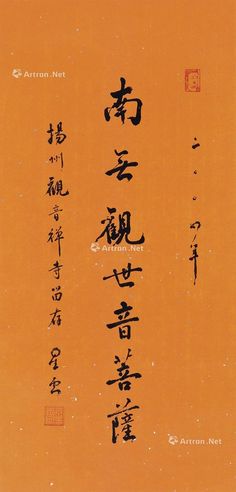 二〇〇四年
南无觀世音菩薩
揚州觀音禅寺留存 星雲
Artron.Net
Artron.Net
Artron.Net
Artron.Net